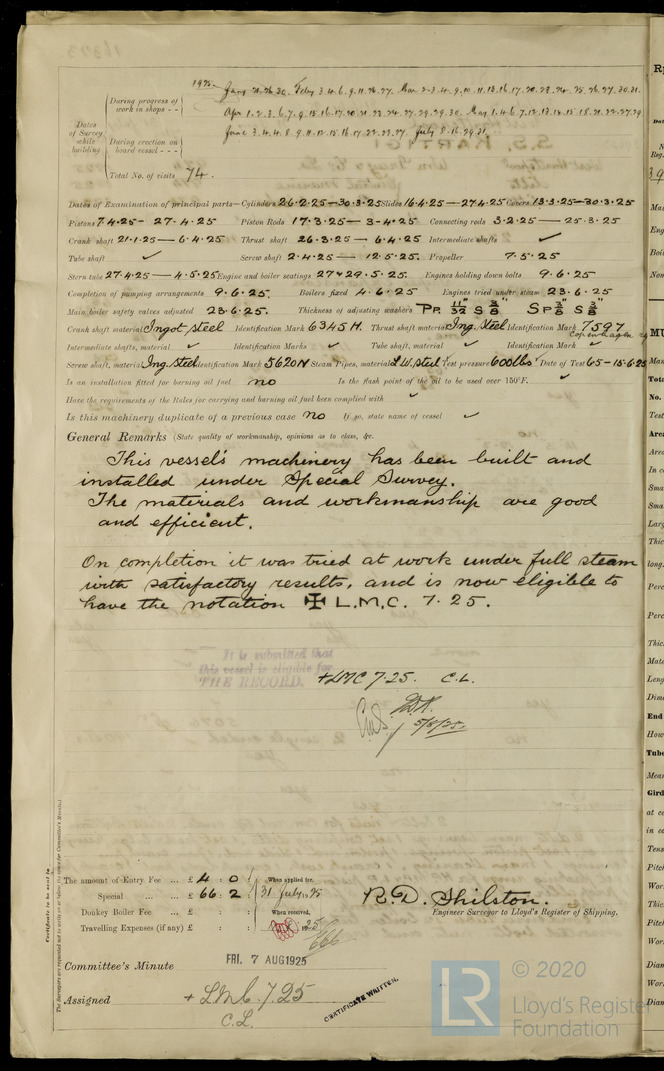 1925. Jany 21. 26. 30. Feby 3. 4. 6. 9. 11. 26. 27. Mar 2. 3. 4. 9. 10. 11. 13. 16. 17. 20. 23. 24. 25. 26. 27. 30. 31.
Dates of Survey while building
During progress of work in shops - -
Apr 1. 2. 3. 6. 7. 9. 15. 16. 17. 20. 21. 22. 24. 27. 28. 29. 30. May 1. 4. 6. 7. 12. 13. 14. 15. 18. 21. 22. 27. 29
During erection on board vessel - - -
June 3. 4. 8. 9. 11. 12. 15. 16. 17. 22. 23. 27. July 8. 16. 29. 31.
Total No. of visits 74.
Dates of Examination of principal parts—Cylinders 26.2.25—30.3.25 Slides 16.4.25—27.4.25 Covers 13.3.25—30.3.25
Pistons 7.4.25- 27.4.25 Piston Rods 17.3.25— 3-4.25 Connecting rods 3.2.25— 25.3.25
Crank shaft 21.1.25—6.4.25 Thrust shaft 26.3.25— 6.4.25 Intermediate shafts ✓
Tube shaft ✓ Screw shaft 2.4.25— 12.5.25. Propeller 7.5.25
Stern tube 27.4.25— 4.5.25 Engine and boiler seatings 27+29.5.25. Engines holding down bolts 9.6.25
Completion of pumping arrangements 9.6.25. Boilers fixed 4.6.25 Engines tried under steam 23.6.25
Main boiler safety valves adjusted 23.6.25. Thickness of adjusting washers Pp. 11/32 S 3/8 SP 3/8 S 3/8
Crank shaft material Ingot Steel Identification Mark 6345H. Thrust shaft material Ing. Steel Identification Mark 7597 Copenhagen
Intermediate shafts, material ✓ Identification Marks ✓ Tube shaft, material ✓ Identification Mark ✓
Screw shaft, material Ing. Steel Identification Mark 5620N Steam Pipes, material L.W. Steel Test pressure 600lbs Date of Test 65-15.6.25
Is an installation fitted for burning oil fuel no Is the flash point of the oil to be used over 150°F. ✓
Have the requirements of the Rules for carrying and burning oil fuel been complied with ✓
Is this machinery duplicate of a previous case no If so, state name of vessel ✓
General Remarks (State quality of workmanship, opinions as to class, &c.
This vessel's machinery has been built and
installed under Special Survey.
The materials and workmanship are good
and efficient.
On completion it was tried at work under full steam
with satisfactory results, and is now eligible to
have the notation ✠ L.M.C. 7.25.
It is submitted that
this vessel is eligible for
THE RECORD.
+LMC 7.25. C.L.
5/8/25
Certificate to be sent to
The Surveyors are requested not to write on or below the space for Committee's Minute.
The amount of Entry Fee ... £ 4 : 0 : When applied for,
Special ... £ 66 : 2 : 31 July 1925
Donkey Boiler Fee ... £ : : When received,
Travelling Expenses (if any) £ : :
R.D. Shilston.
Engineer Surveyor to Lloyd's Register of Shipping.
Committee's Minute FRI. 7 AUG 1925
Assigned + LMC. 7.25
C.L.
CERTIFICATE WRITTEN.
LR © 2020
Lloyd's Register
Foundation